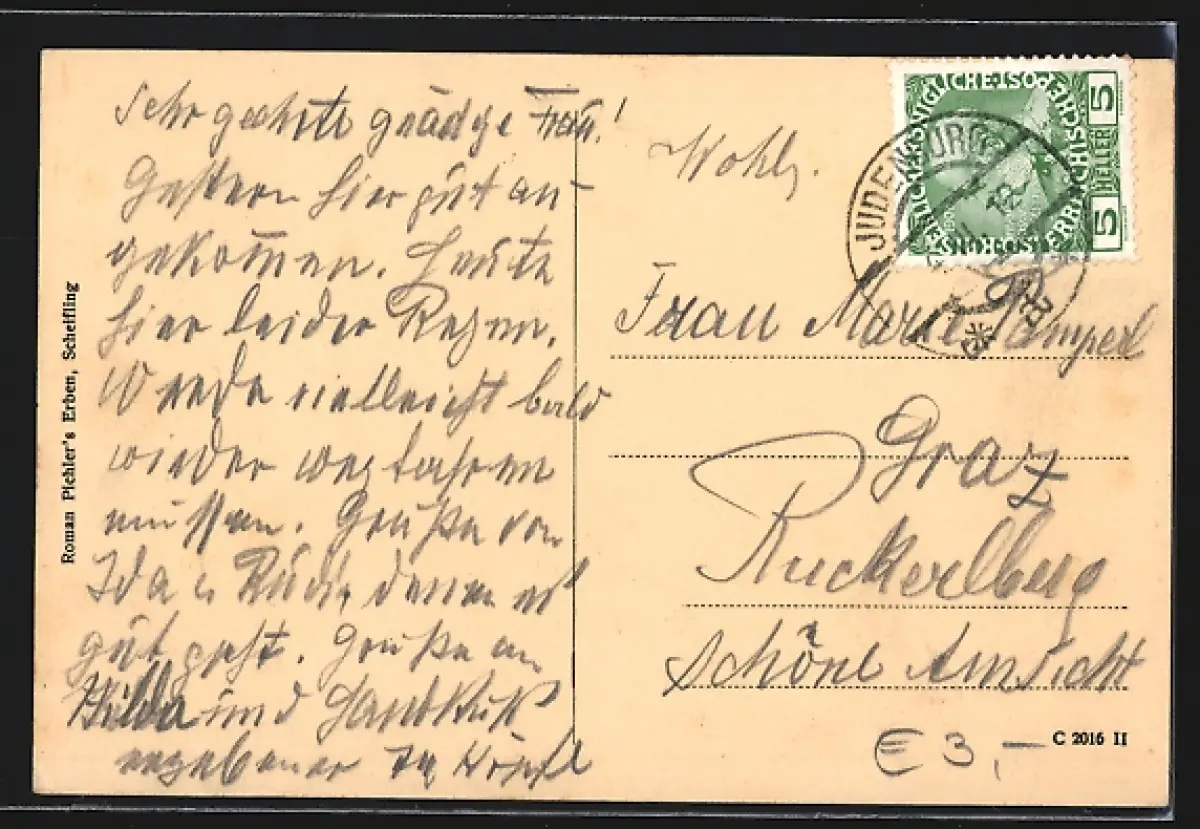 Sehr geehrte gnädige Frau!
Gestern hier gut an-
gekommen. Heute
hier leider Regen.
Werde vielleicht bald
wieder wegfahren
müssen. Grüße von
Ida u Rudi, denen es
gut geht. Grüße an
Hilda und Handkuß
ergebener
Roman Pichler's Erben, Scheifling
Wohlg.
JUDENBURG
5 HELLER 5
Frau Marie
Graz
Ruckerlberg
Schöne Aussicht
C 2016 II
€ 3,-